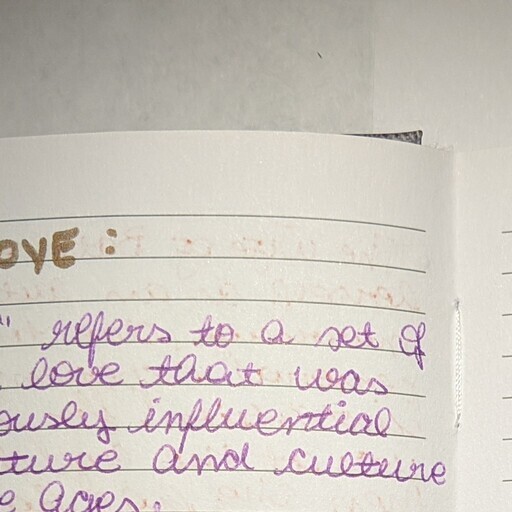 OVE :
" refers to a set of
love that was
ously influential
ture and culture
e ages.